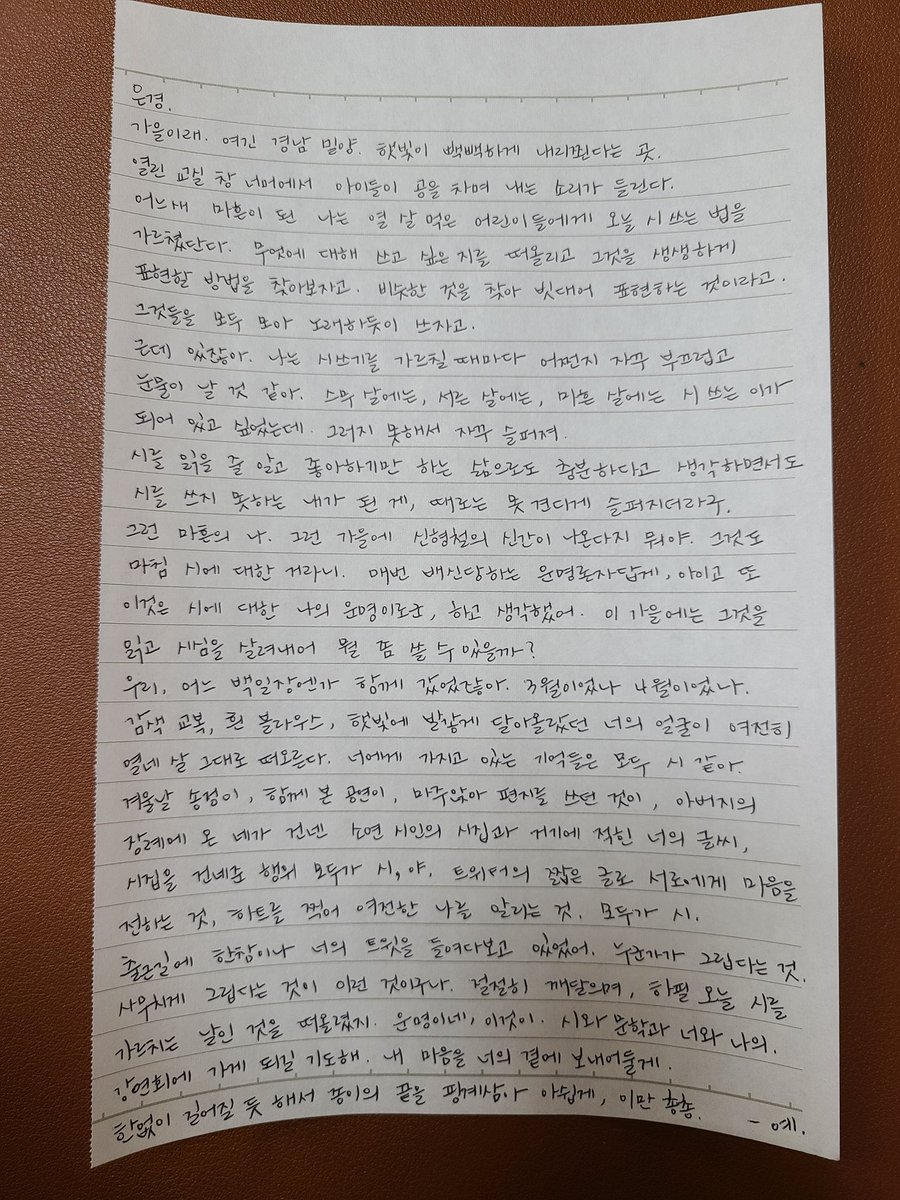 은경.
가을이래. 여긴 경남 밀양. 햇빛이 빽빽하게 내리쬔다는 곳.
열린 교실 창 너머에서 아이들이 공을 차며 내는 소리가 들린다.
어느새 마흔이 된 나는 열 살 먹은 어린이들에게 오늘 시 쓰는 법을
가르쳤단다. 무엇에 대해 쓰고 싶은지를 떠올리고 그것을 생생하게
표현할 방법을 찾아보자고. 비슷한 것을 찾아 빗대어 표현하는 것이라고.
그것들을 모두 모아 노래하듯이 쓰자고.
근데 있잖아. 나는 시쓰기를 가르칠 때마다 어쩐지 자꾸 부끄럽고
눈물이 날 것 같아. 스무 살에는, 서른 살에는, 마흔 살에는 시 쓰는 이가
되어 있고 싶었는데. 그러지 못해서 자꾸 슬퍼져.
시를 읽을 줄 알고 좋아하기만 하는 삶으로도 충분하다고 생각하면서도
시를 쓰지 못하는 내가 된 게, 때로는 못 견디게 슬퍼지더라구.
그런 마흔의 나. 그런 가을에 신형철의 신간이 나온다지 뭐야. 그것도
마침 시에 대한 거라니. 매번 배신당하는 운명론자답게, 아이고 또
이것은 시에 대한 나의 운명이로군, 하고 생각했어. 이 가을에는 그것을
읽고 시심을 살려내어 뭘 쫌 쓸 수 있을까?
우리, 어느 백일장엔가 함께 갔었잖아. 3월이었나 4월이었나.
감색 교복, 흰 블라우스, 햇빛에 발갛게 달아올랐던 너의 얼굴이 여전히
열네 살 그대로 떠오른다. 너에게 가지고 있는 기억들은 모두 시 같아.
겨울날 송정이, 함께 본 공연이, 마주앉아 편지를 쓰던 것이, 아버지의
장례에 온 네가 건넨 소연 시인의 시집과 거기에 적힌 너의 글씨,
시집을 건네준 행위 모두가 시, 야. 트위터의 짧은 글로 서로에게 마음을
전하는 것, 하트를 찍어 여전한 나를 알리는 것. 모두가 시.
출근길에 한참이나 너의 트윗을 들여다보고 있었어. 누군가가 그립다는 것.
사무치게 그립다는 것이 이런 것이구나. 절절히 깨달으며, 하필 오늘 시를
가르치는 날인 것을 떠올렸지. 운명이네, 이것이. 시와 문학과 너와 나의.
강연회에 가게 되길 기도해. 내 마음을 너의 곁에 보내어둘게.
한없이 길어질 듯 해서 종이의 끝을 핑계삼아 아쉽게, 이만 총총.
- 예.